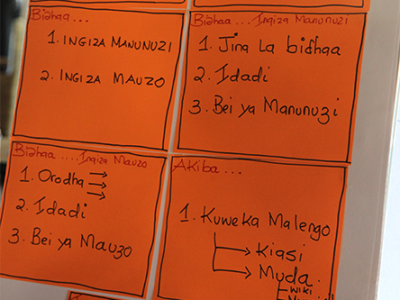 Bidhaa ...
1. INGIZA MANUNUZI
2. INGIZA MAUZO
Bidhaa ... Ingiza Manunuzi
1. Jina La bidhaa
2. Idadi
3. Bei ya Manunuzi
Bidhaa .... Ingiza Mauzo
1. Orodha
2. Idadi
3. Bei ya Mauzo
AKiba ...
1. Kuweka Malengo
Kiasi
Muda
WIKI